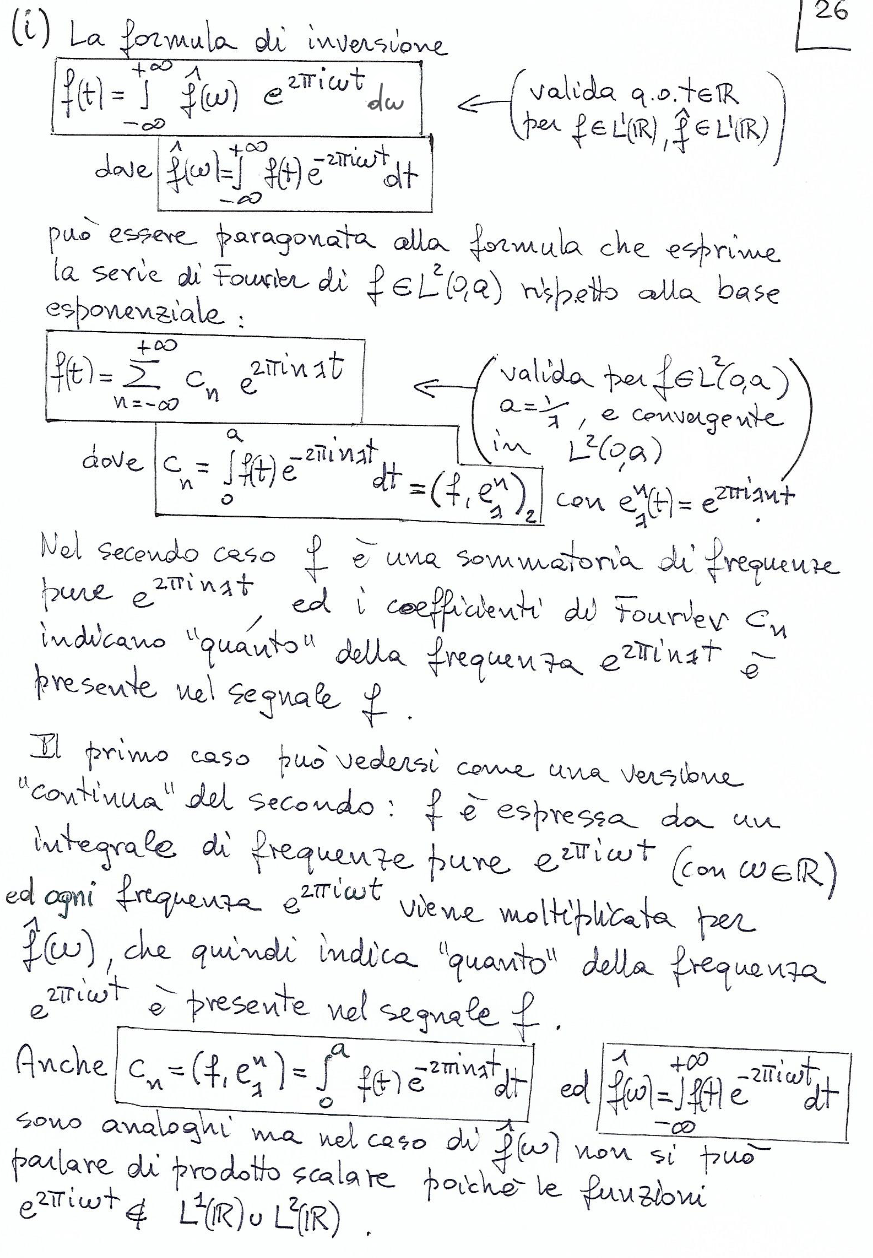 26
(i) La formula di inversione
f(t) = ∫_{-∞}^{+∞} f̂(ω) e^{2πiωt} dω ← (valida q.o. t∈ℝ
per f∈L¹(ℝ), f̂∈L¹(ℝ))
dove f̂(ω) = ∫_{-∞}^{+∞} f(t) e^{-2πiωt} dt
può essere paragonata alla formula che esprime
la serie di Fourier di f∈L²(0,a) rispetto alla base
esponenziale:
f(t) = Σ_{n=-∞}^{+∞} c_n e^{2πinλt} ← (valida per f∈L²(0,a)
a=1/λ, e convergente
in L²(0,a))
dove c_n = ∫_0^a f(t) e^{-2πinλt} dt = (f, e_λ^n)_2 con e_λ^n(t) = e^{2πiλnt}.
Nel secondo caso f è una sommatoria di frequenze
pure e^{2πinλt}, ed i coefficienti di Fourier c_n
indicano "quanto" della frequenza e^{2πinλt} è
presente nel segnale f.
Il primo caso può vedersi come una versione
"continua" del secondo: f è espressa da un
integrale di frequenze pure e^{2πiωt} (con ω∈ℝ)
ed ogni frequenza e^{2πiωt} viene moltiplicata per
f̂(ω), che quindi indica "quanto" della frequenza
e^{2πiωt} è presente nel segnale f.
Anche c_n = (f, e_λ^n) = ∫_0^a f(t) e^{-2πinλt} dt ed f̂(ω) = ∫_{-∞}^{+∞} f(t) e^{-2πiωt} dt
sono analoghi ma nel caso di f̂(ω) non si può
parlare di prodotto scalare poichè le funzioni
e^{2πiωt} ∉ L¹(ℝ) ∪ L²(ℝ).